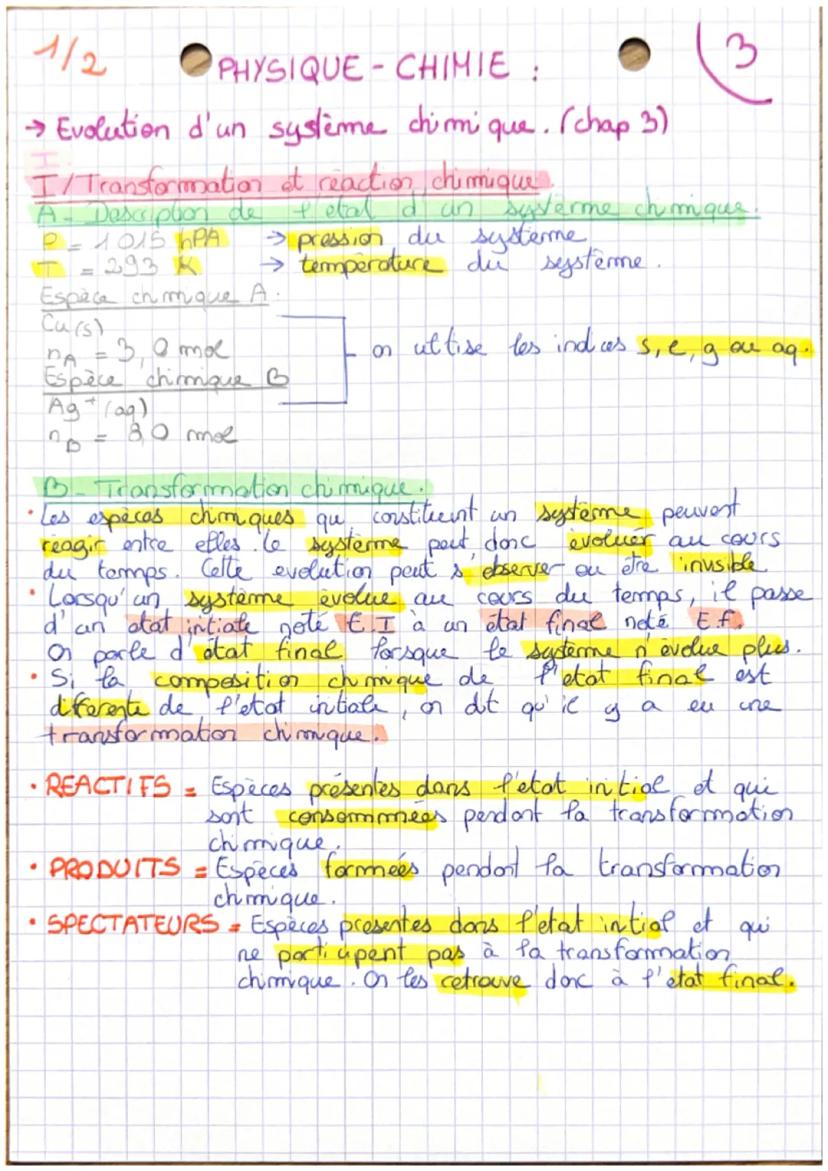 1/2
PHYSIQUE - CHIMIE :
3
→ Evolution d'un système chimique. (chap 3)
I
I/ Transformation et réaction chimique.
A - Description de l'état d'un système chimique.
P = 1 015 hPA → pression du système
T = 293 K → température du système.
Espèce chimique A.
Cu (s)
nA = 3,0 mol
on utilise les indices s, l, g ou aq.
Espèce chimique B
Ag+ (aq)
nB = 3,0 mol
B - Transformation chimique.
• Les espèces chimiques qui constituent un système peuvent
réagir entre elles. Le système peut donc évoluer au cours
du temps. Cette evolution peut s'observer ou être invisible
• Lorsqu'un système évolue au cours du temps, il passe
d'un état intiale noté E.I à un état final noté E.f.
On parle d'état final lorsque le système n'évolue plus.
• Si la composition chimique de l'etat final est
diferente de l'etat intiale, on dit qu'il y a eu une
transformation chimique.
• REACTIFS = Espèces présentes dans l'etat intial et qui
sont consommées pendant la transformation
chimique.
• PRODUITS = Espèces formées pendant la transformation
chimique.
• SPECTATEURS = Espèces presentes dans l'etat intial et qui
ne participent pas à la transformation
chimique. On les retrouve donc à l'état final.